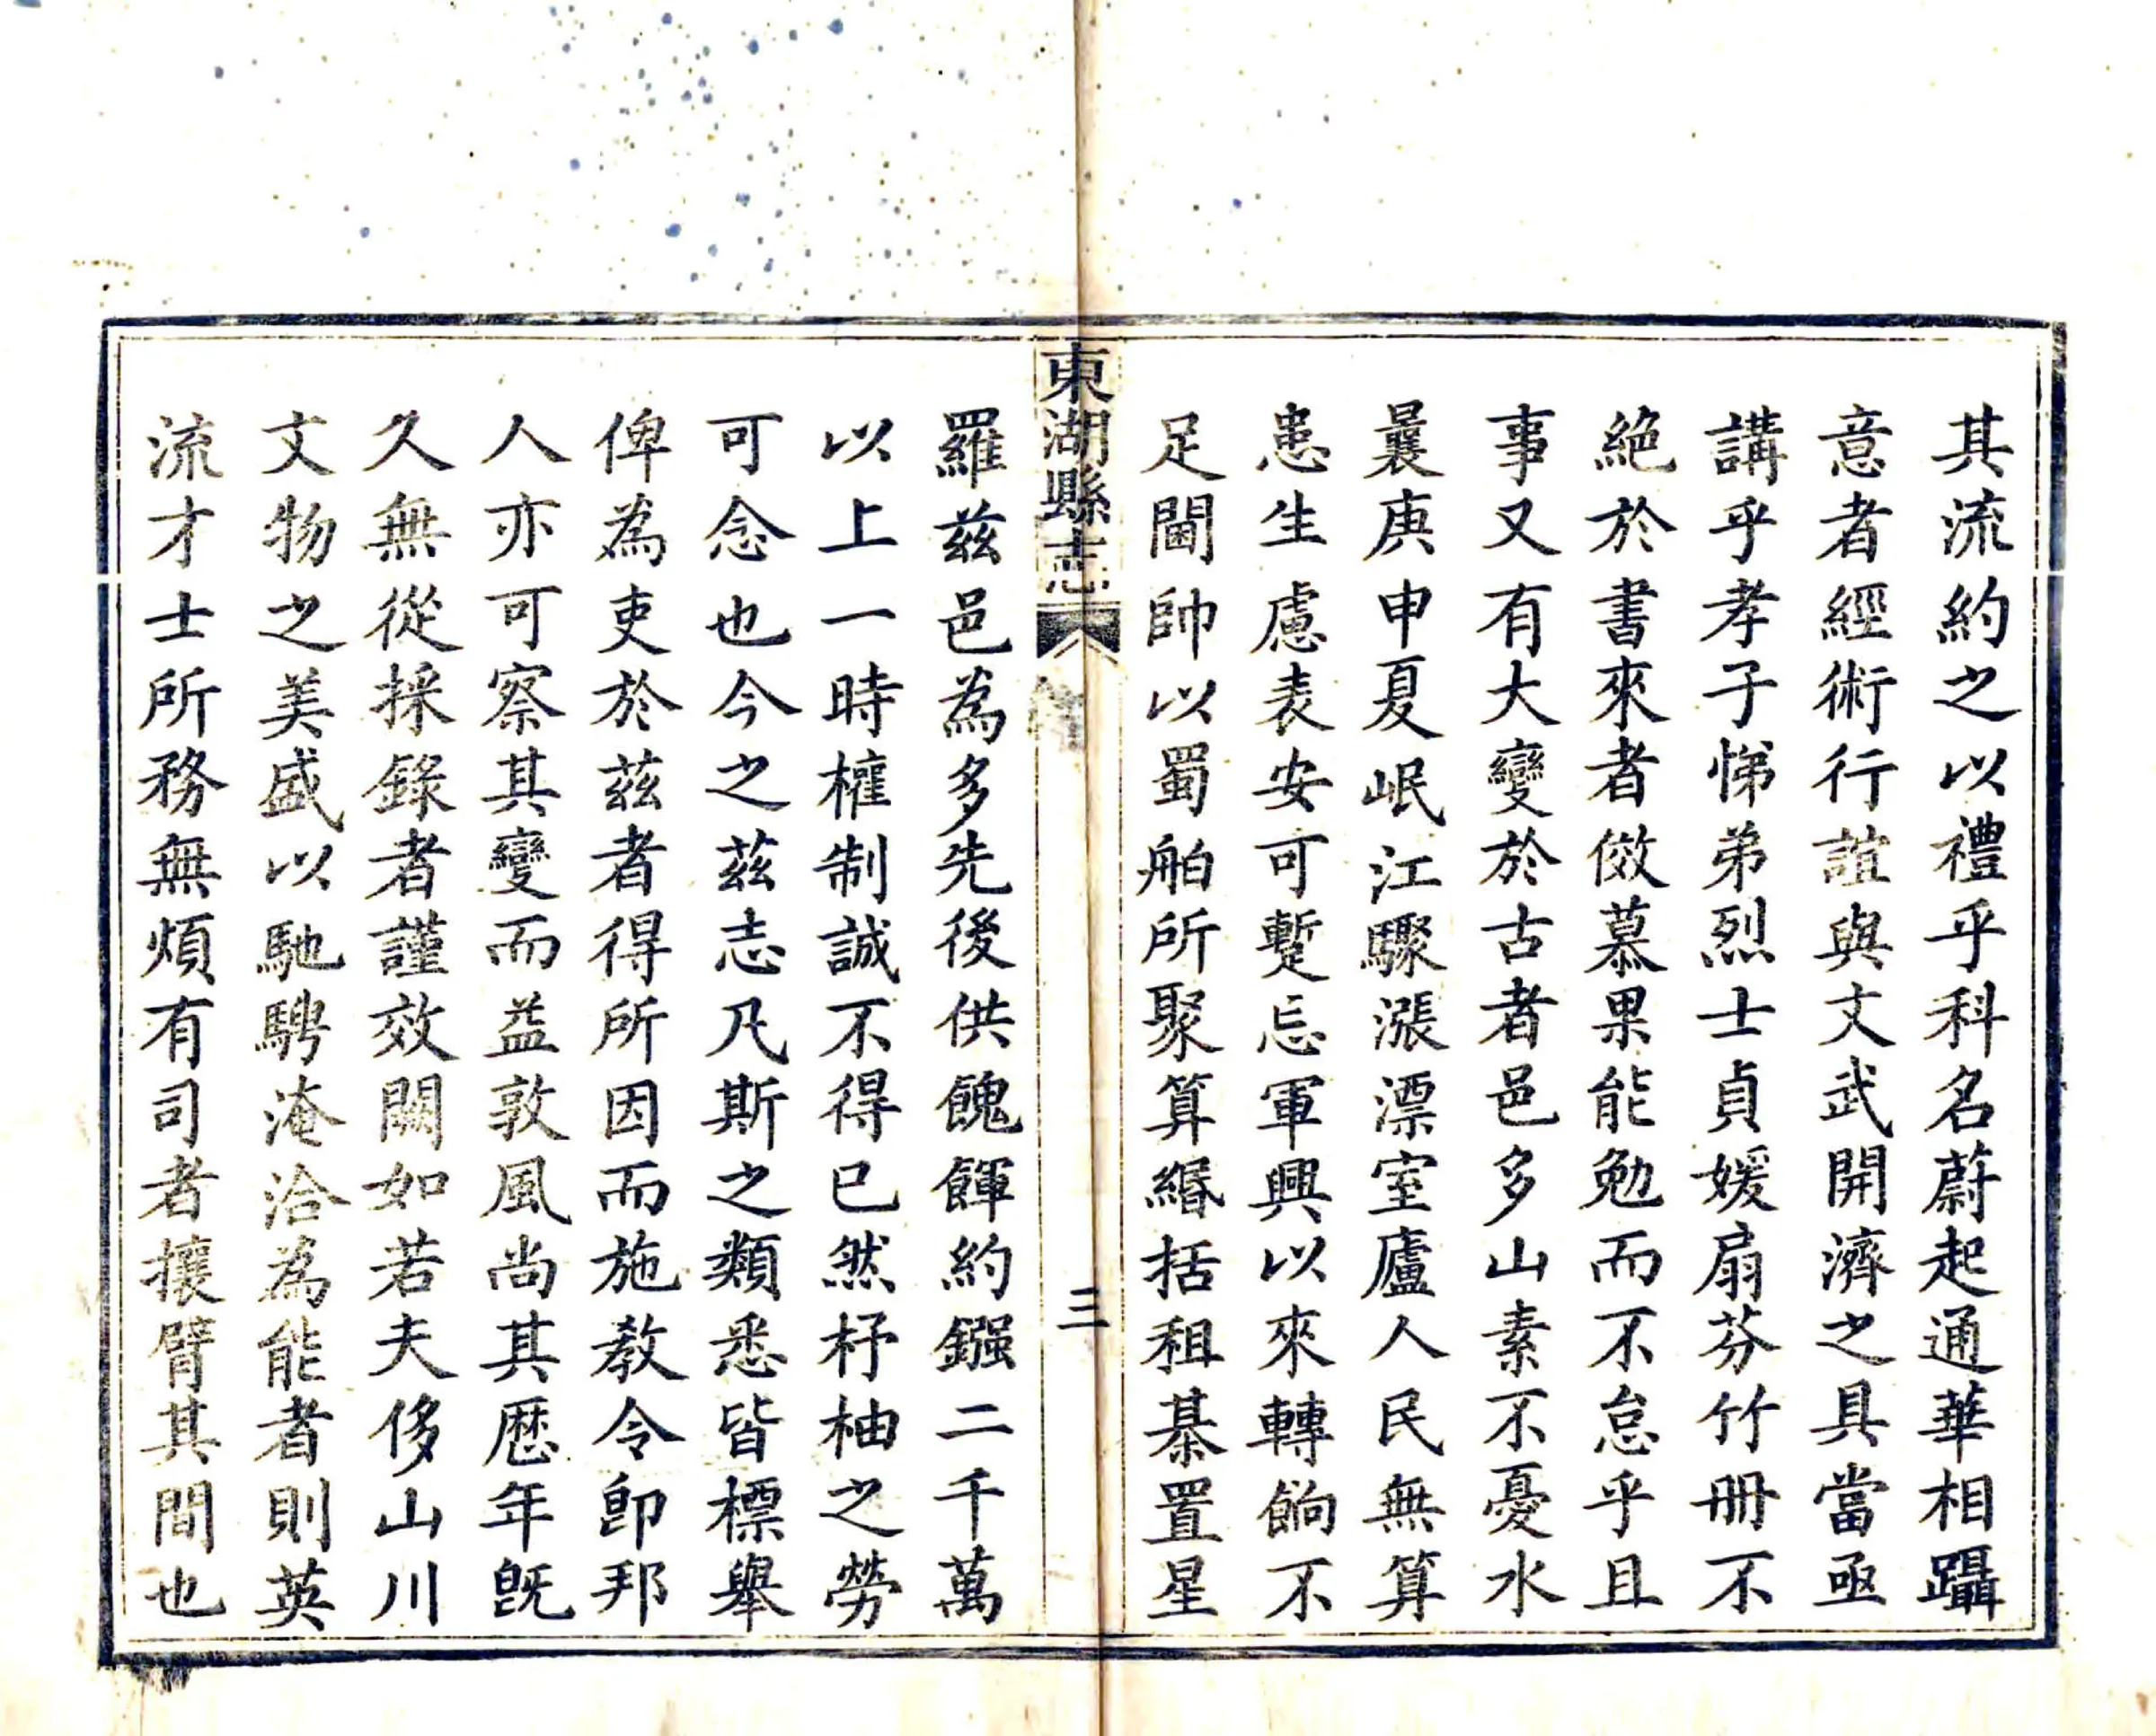 其流約之以禮乎科名蔚起通華相躡
意者經術行誼與文武開濟之具當亟
講乎孝子悌弟烈士貞媛扇芬竹冊不
絕於書來者傚慕果能勉而不怠乎且
事又有大變於古者邑多山素不憂水
曩庚申夏岷江驟漲漂室廬人民無算
患生慮表安可暫忘軍興以來轉餉不
足閫帥以蜀舶所聚算緡括租棊置星
東湖縣志
三
羅茲邑為多先後供餽餫約鏹二千萬
以上一時權制誠不得已然杼柚之勞
可念也今之茲志凡斯之類悉皆標舉
俾為吏於茲者得所因而施教令卽邦
人亦可察其變而益敦風尚其歷年旣
久無從採錄者謹效闕如若夫侈山川
文物之美盛以馳騁淹洽為能者則英
流才士所務無煩有司者攘臂其間也